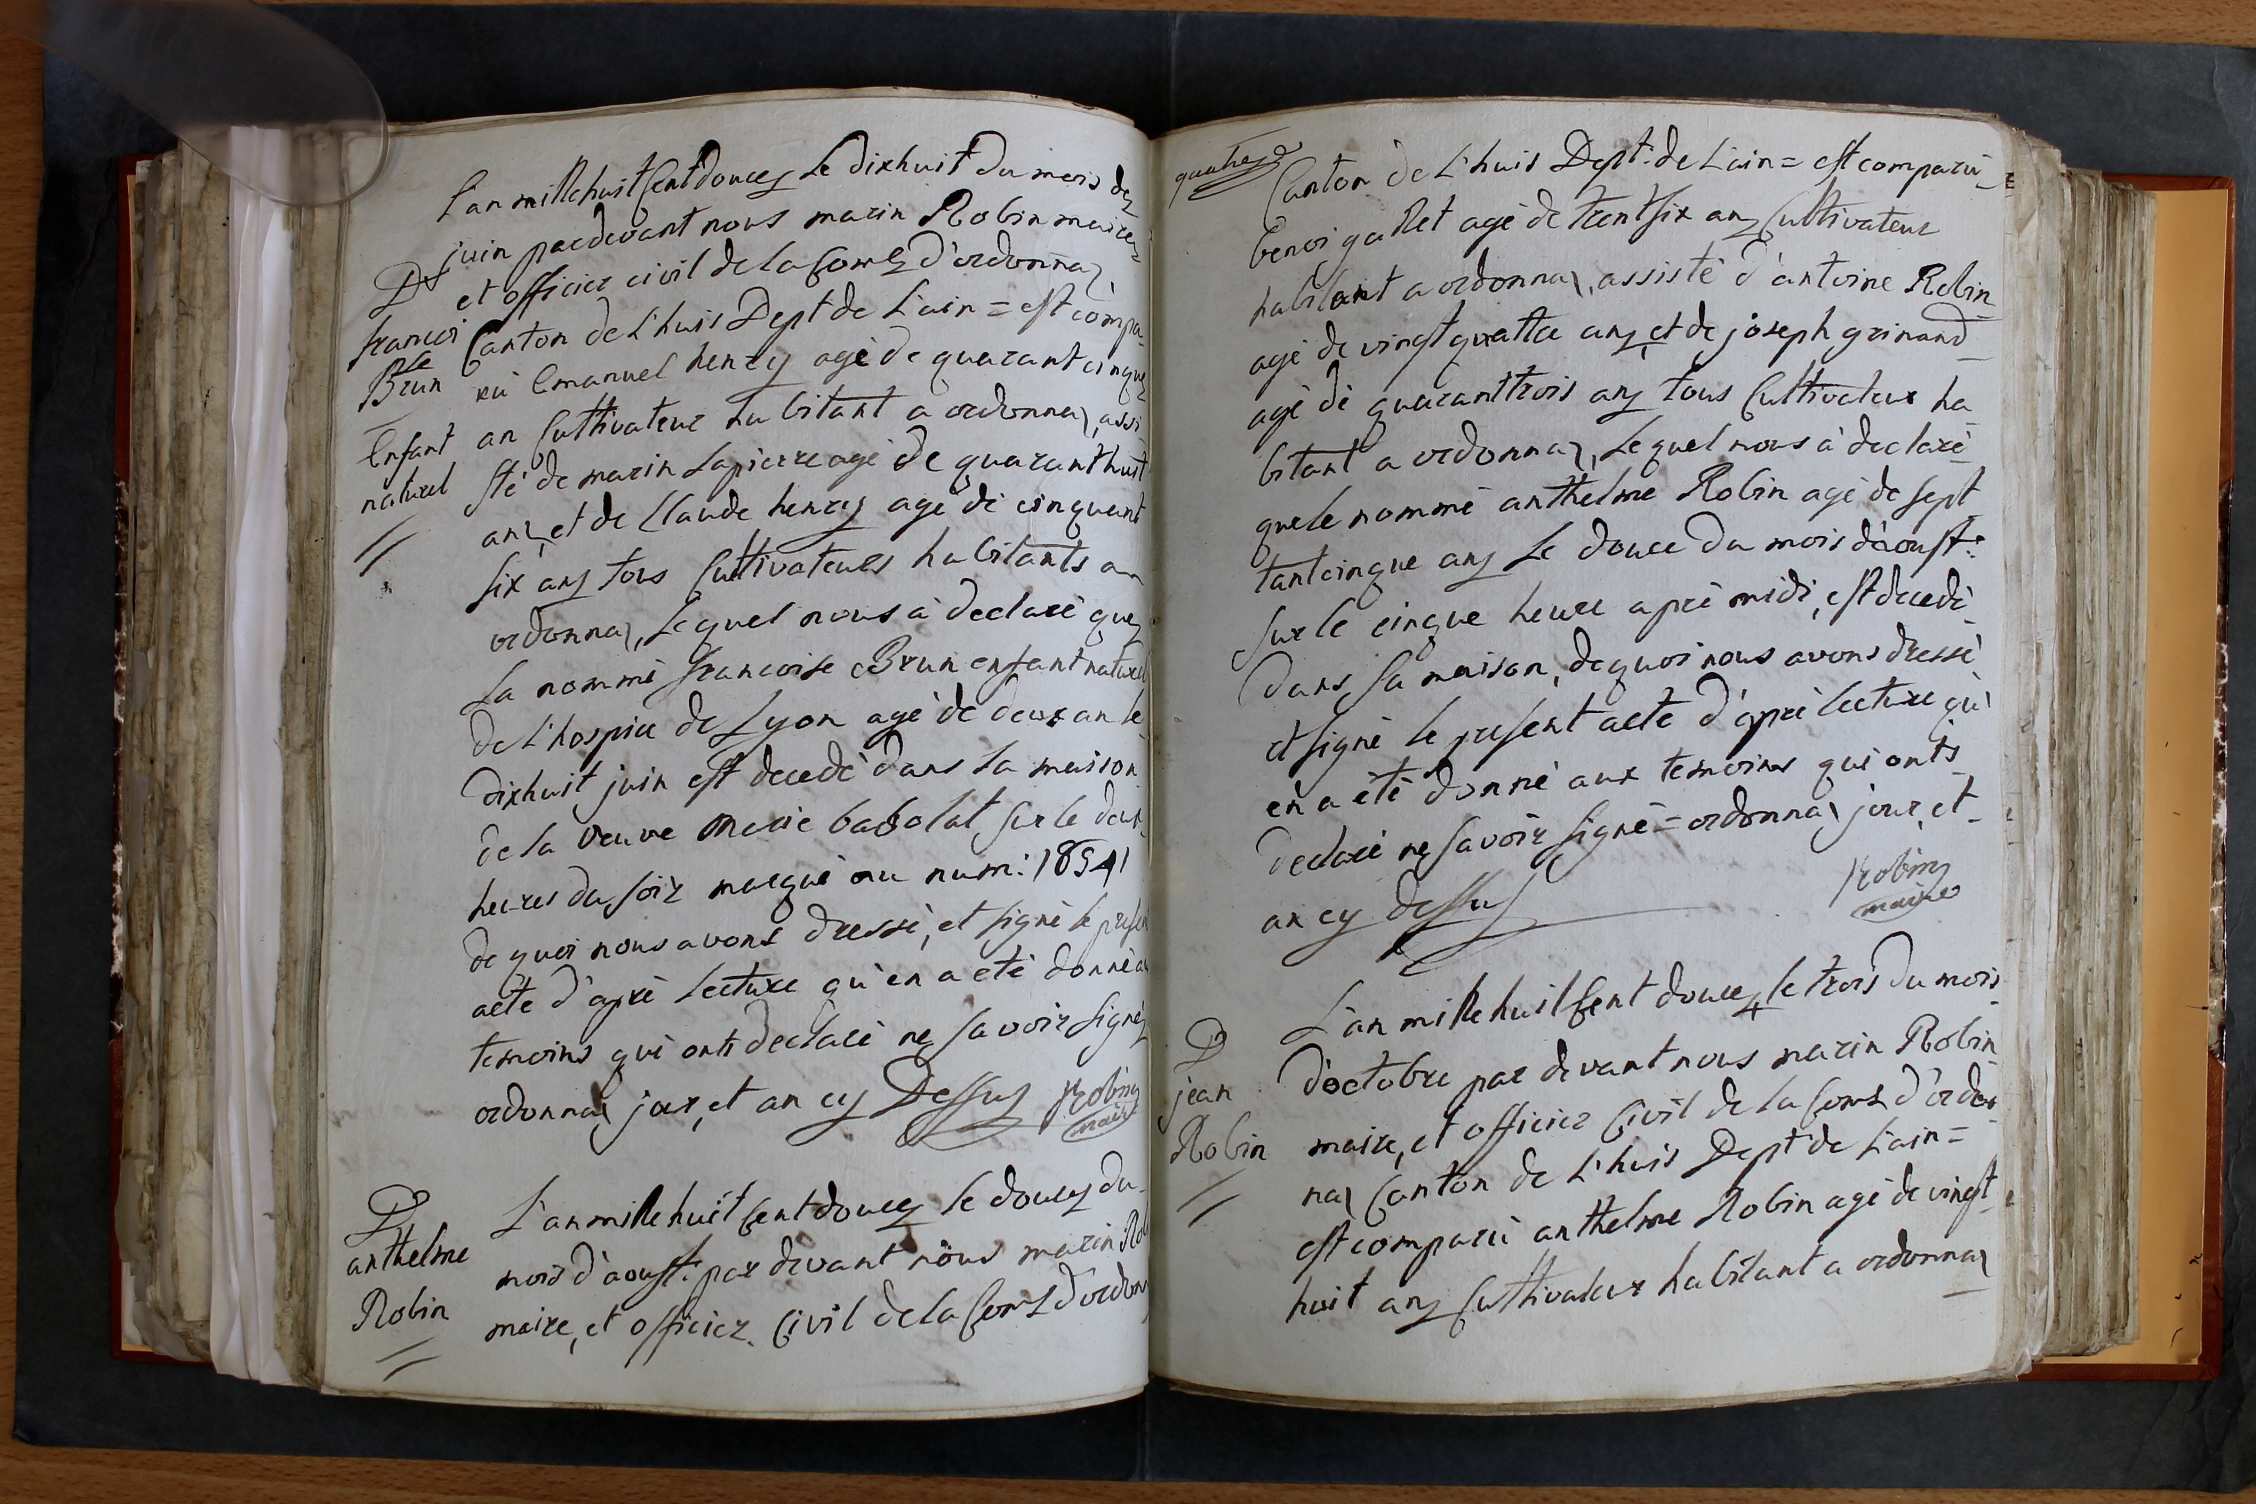 L'an mille huit Cent douce Le dixhuit Du mois de
juin par devant nous marin Robin maire
et officier civil de la Come d'ordonnaz
Canton de L'huis Dept de L'ain = est compa-
rû Emanuel henry agé de quarant cinque
an Cultivateur habitant a ordonnaz, assi
sté de marin Lapierre agé de quarant huit
anz et de Claude henry agé de cinquant
six anz tous Cultivateurs habitants a
ordonnaz, Lequel nous à declaré que
La nommé francoise Brun enfant naturel
de L'hospice de Lyon agé de deux an le
dixhuit juin est decedé dans la maison
de la veuve marie babolat sur le deux
heures du soir marqué au num: 18541
de quoi nous avons dressé, et signé le present
acte d'apré Lecture qu'en a eté donné au
temoins qui onts declaré ne savoir signé
ordonnaz jour, et an cy Dessus Robin
maire
D
francoi
se
Brun
Enfant
naturel
L'an mille huit Cent douce le douce du
mois d'aoust: par devant nous marin Rob
maire, et officier Civil de la Come d'ordon
D
anthelme
Robin
quatre
Canton de L'huis Dept: de L'ain = est comparû
benoi gallet agé de trent six anz Cultivateur
habitant a ordonnaz, assisté d'antoine Robin
agé de vingt quattre anz et de joseph grinand
agé de quarant trois anz tous Cultivateur ha
bitant a ordonnaz, Lequel nous à declaré
que le nommé anthelme Robin agé de sept
tant cinque anz Le douce Du mois d'aoust:
sur le cinque heure apré midi, est decedé
dans sa maison, de quoi nous avons dressé
et signé le present acte d'apré lecture qu'
en a eté donné aux temoins qui onts
declaré ne savoir signé = ordonnaz jour, et
an cy dessus
Robin
maire
L'an mille huit Cent douce le trois Du mois
d'octobre par devant nous marin Robin
maire, et officier Civil de la Come d'ordon
naz Canton de L'huis Dept de L'ain =
est comparû anthelme Robin agé de vingt
huit anz Cultivateur habitant a ordonnaz
D
jean
Robin